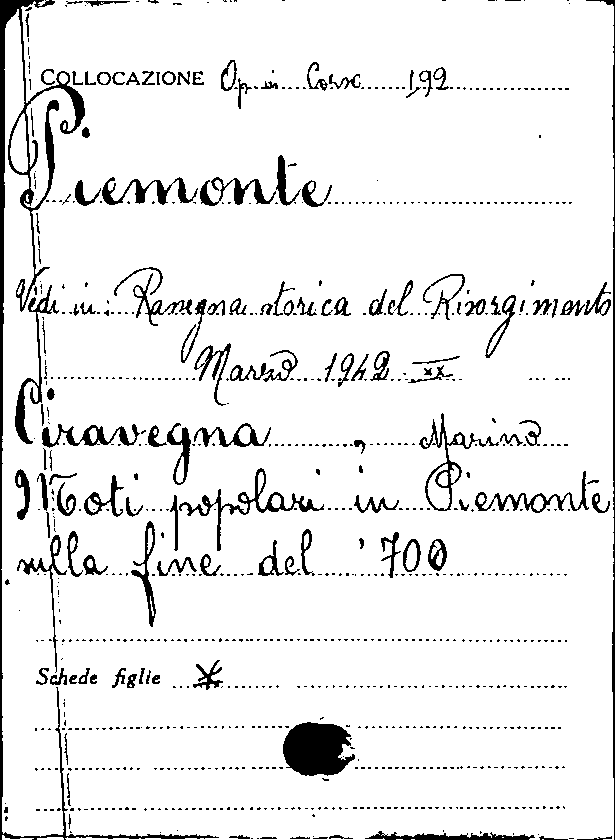 COLLOCAZIONE Op in Corso 199
Piemonte
Vedi in: Rassegna storica del Risorgimento
Marzo 1942 XX
Ciravegna, Marino
Moti popolari in Piemonte
sulla fine del '700
Schede figlie